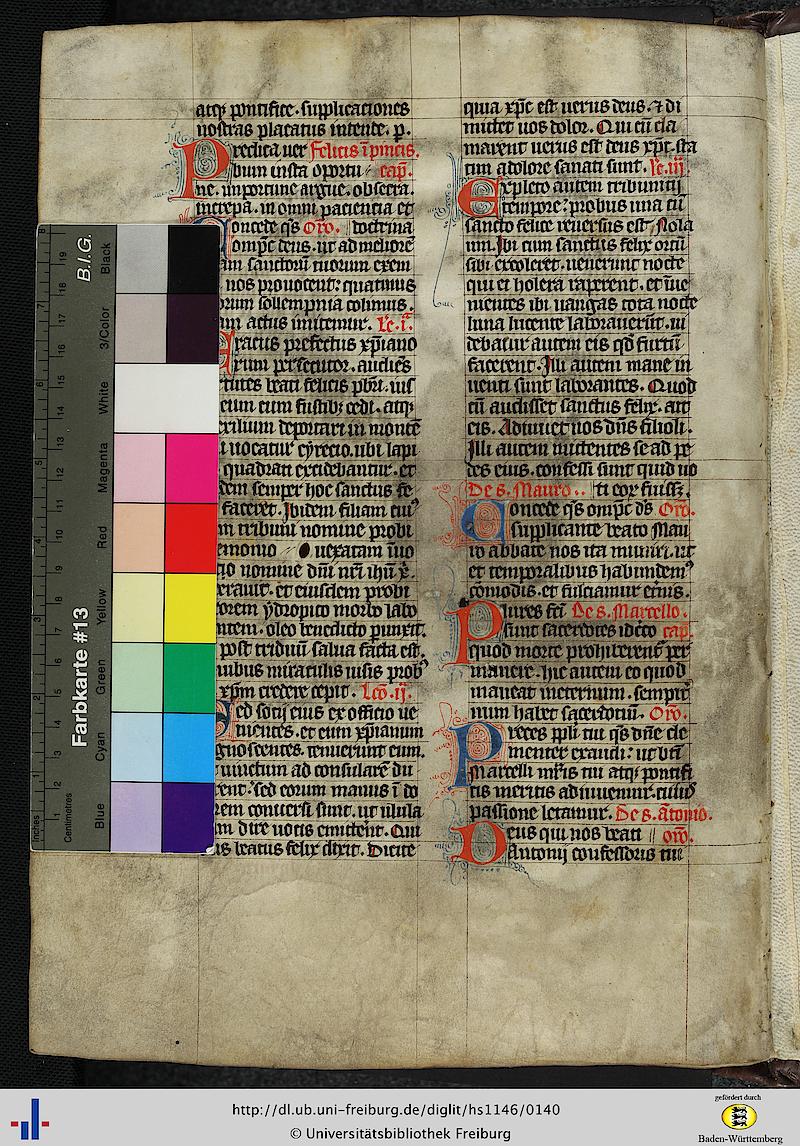 atq; pontifice. supplicaciones
nostras placatus intende. p.
Predica uer Felicis ī pincis.
bum insta oportu cap̄.
ne. importune argue. obsecra.
increpa. in omni paciencia et
oncede qs Oro. doctrina
omp̄c deus. ut ad meliorē
am sanctorū tuorum exem
nos prouocent: quatinus
orum sollempnia colimus.
am actus imitemur. Lc̄. i.ª
racus prefectus xp̄iano
rum persecutor. audiēs
tutes beati felicis pbr̄i. ius
eum eum fustib; cedi. atq;
exilium deportari in montē
i uocatur cyrceio. ubi lapi
quadrati excidebantur. et
dem semper hoc sanctus fe
faceret. Ibidem filiam cui9
m tribuni nomine probi
emonio uexatam iuo
io nomine dn̄i nr̄i ihū x̄.
erauit. et eiusdem probi
orem ydropico morbo labo
ntem. oleo benedicto punxit.
post triduū salua facta est.
uibus miraculis uisis prob9
xp̄m credere cepit. Lc̄o. ij.
ed socij eius ex officio ue
nientes. et eum xp̄ianum
gnoscentes. tenuerunt eum.
uinctum ad consularē du
rent: sed eorum manus ī do
rem conuersi sunt. ut ulula
m dire uocis emitterent. Qui
us beatus felix dixit. Dicite
quia xp̄c est uerus deus. ⁊ di
mittet uos dolor. Qui cū cla
marent uerus est deus xp̄c. sta
tim a dolore sanati sunt. Lc̄. iij.
Expleto autem tribunicij
tempore: probus una cū
sancto felice reuersus est Nola
um. Ibi cum sanctus felix ortū
sibi excoleret. uenerunt nocte
qui et holera raperent. et īue
nientes ibi uangas tota nocte
luna lucente laborauerūt. ui
debatur autem eis qd̄ furtū
facerent. Illi autem mane in
uenti sunt laborantes. Quod
cū audisset sanctus felix. ait
eis. Adiuuet uos dn̄s filioli.
Illi autem mittentes se ad pe
des eius. confessi sunt quid no
De s. Mauro.. cti eor fuiss;.
Concede qs omp̄c ds̄ Oro.
supplicante beato Mau
ro abbate nos ita muniri. ut
et temporalibus habundem9
comodis. et fulciamur et̄nis.
Plures fc̄i De s. Marcello.
sunt sacerdotes idcirco cap.
quod morte prohiberent̄ per
manere. hic autem eo quod
maneat ineternum. sempit̄
num habet sacerdociū. Oro.
Preces pp̄li tui qs dn̄e cle
menter exaudi: ut bt̄i
Marcelli mr̄is tui atq; pontifi
cis meritis adiuuemur. cui9
passione letamur. De s. Ātonio.
Deus qui nos beati oro.
Antonij confessoris tui
B.I.G.
Farbkarte #13
Black
3/Color
White
Magenta
Red
Yellow
Green
Cyan
Blue
Inches
Centimetres
http://dl.ub.uni-freiburg.de/diglit/hs1146/0140
© Universitätsbibliothek Freiburg
gefördert durch
Baden-Württemberg